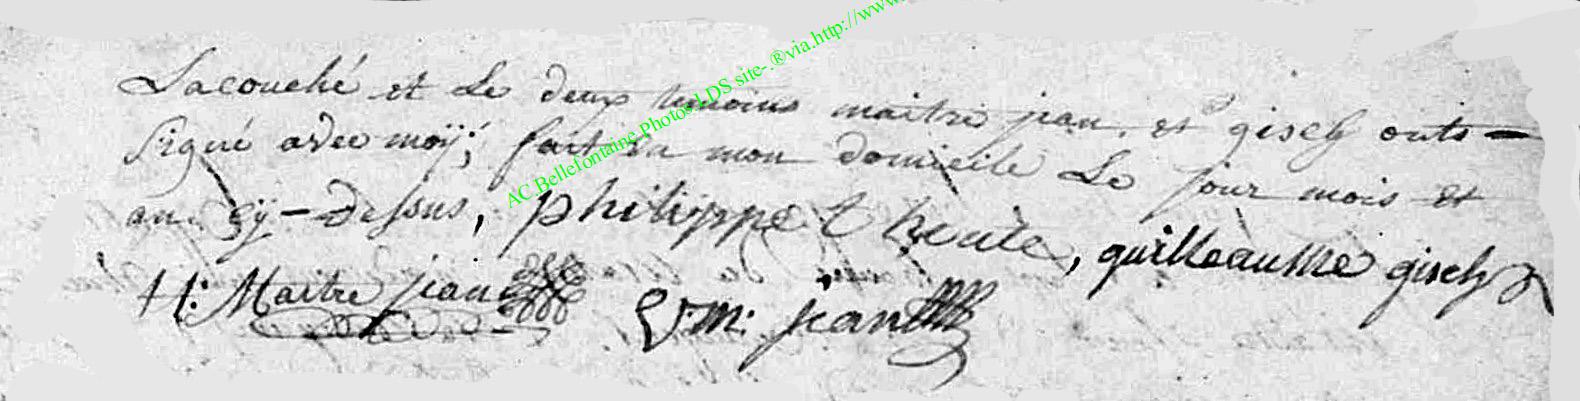 Lacouché et Le deux temoins maitre jean, et gisch onts-
signé avec moÿ; fait en mon domicile Le jour mois et
an cÿ-dessus, philippe thenté, guilleaume gisch
H: Maitre jean V:m: jean
AC Bellefontaine Photos LDS site-.®via.http://www.